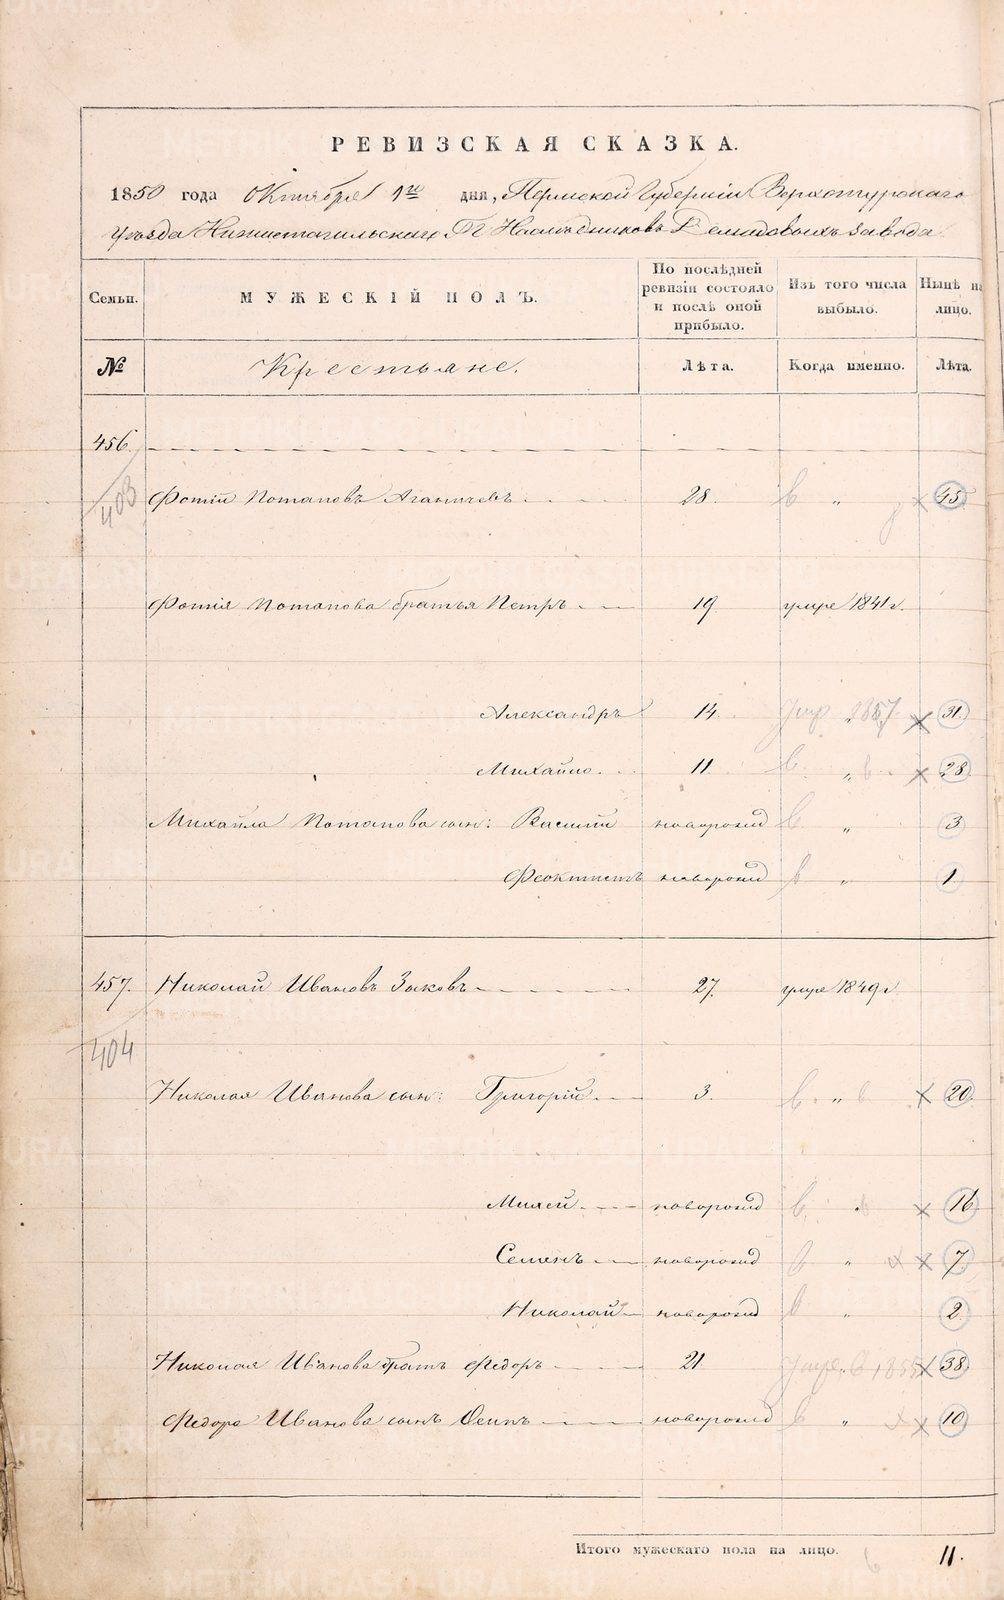 РЕВИЗСКАЯ СКАЗКА.
1850 года Октября 1го дня, Пермской Губернiи Верхотурскаго
Уѣзда Нижнетагильскаго, ГГ Наслѣдниковъ Демидовыхъ завода.
Семьи. МУЖЕСКIЙ ПОЛЪ. По послѣдней ревизiи состояло и послѣ оной прибыло. Изъ того числа выбыло. Нынѣ на лицо.
№ Крестьяне. Лѣта. Когда именно. Лѣта.
456.
403
Фотiй Потаповъ 28. в " 45.
Фотiя Потапова братья Петръ 19. умре 1841 г.
Александръ 14. умр 1857 " 31.
Михайло. 11 в " 28
Михайла Потапова сын: Василiй новорожд в " 3
Феоктистъ новорожд в " 1
457. Николай Ивановъ Зыковъ 27. умре 1849 г
404
Николая Иванова сын: Григорiй 3. в " 20.
новорожд в " 16
Семенъ новорожд в " 7
Николай новорожд в " 2
Николая Иванова братъ Федоръ 21 умре " в 1855 38
Федора Иванова сынъ Осипъ новорожд в " 10
Итого мужескаго пола на лицо. 11.
METRIKI.GASO-URAL.RU